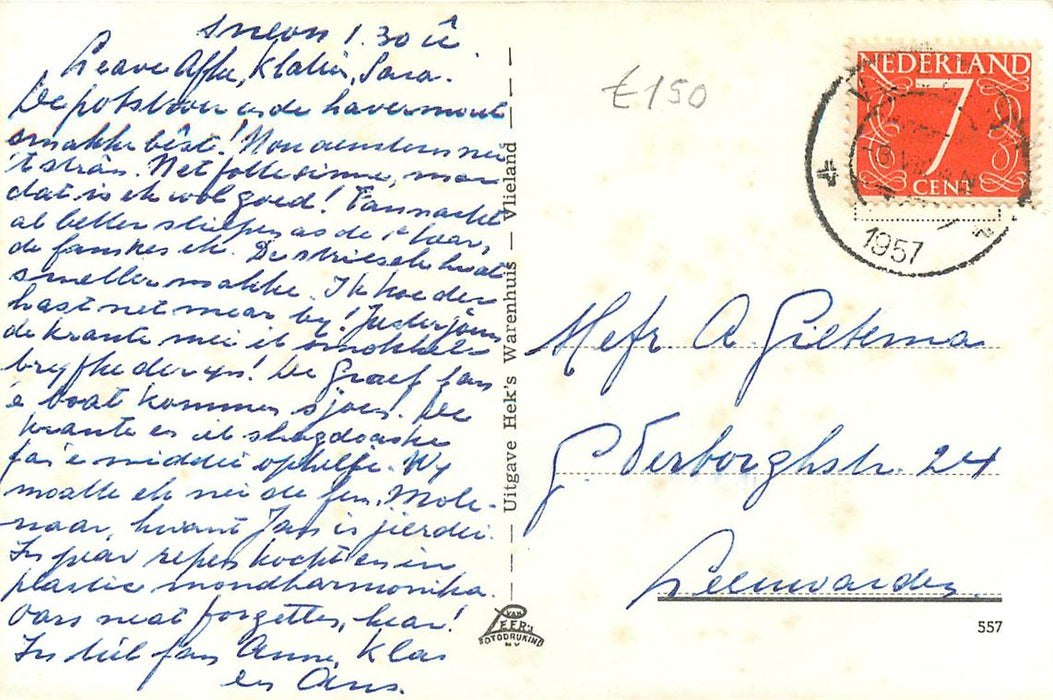 sneon 1.30 û.
Leave Afke, Klaske, Sara.
De potstrou en de havermout
smakke bêst! Mou oenstens nei
't strân. Net folle sinne, mar
dat is ek wol goed! Fannacht
al better sliepen as de 1e kear,
de famkes ek. De striesek hwat
smeller makke. Ik hoe der
hast net mear by! Justerjoun
de krante mei it smokkels
bryfke der yn! De Graef fan
'e boat kommen sjoen! De
krante en it slagdoaske
fan 'e middei ophelje. Wy
moatte ek nei de fen. Mole-
naar, hwant Jan is jierdei.
In pear repen kocht en in
plastic mondharmonika.
Oars neat forgetten, hear!
In tút fan Anne, Klas
en Ans.
Uitgave Hek's Warenhuis — Vlieland
VAN LEER'S
FOTODRUKIND
N.V.
£150
NEDERLAND
7
CENT
1957
Mefr A. Gietema
G Verborghstr. 24
Leeuwarden
557